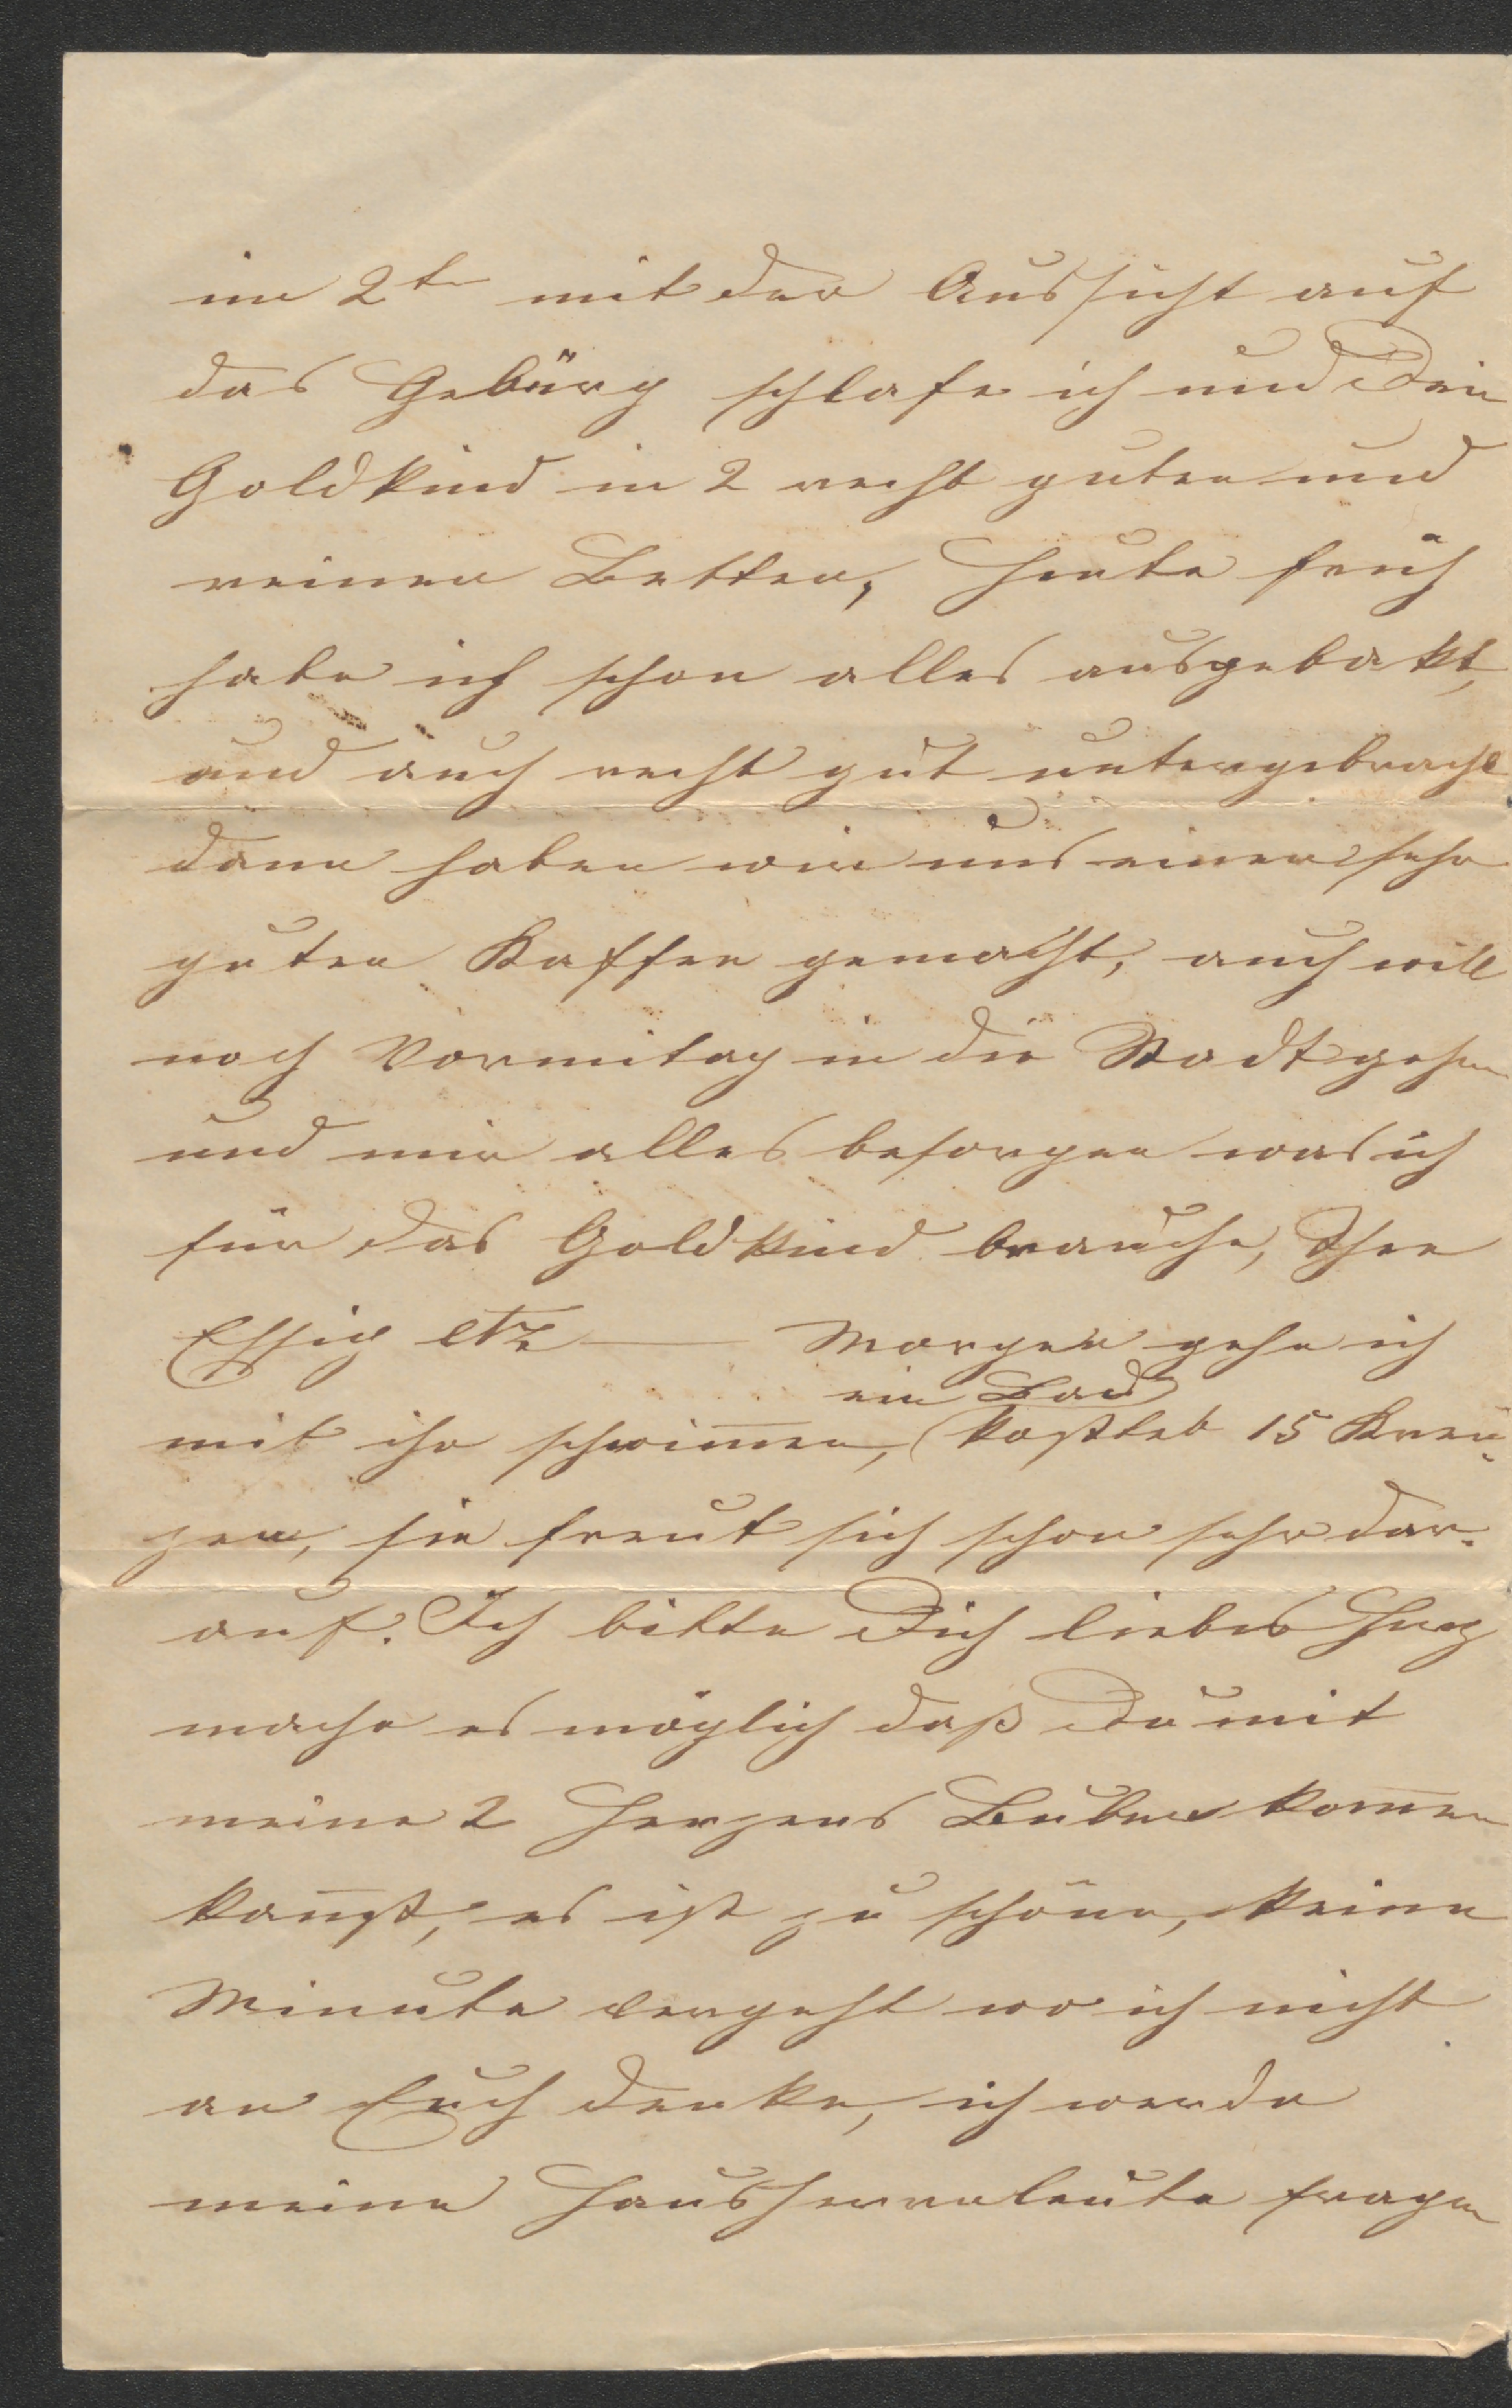 im 2t mit der Aussicht auf
das Gebürg schlafe ich und Dein
Goldkind in 2 recht guten und
reinen Betten, Heute früh
habe ich schon alles ausgebakt,
und auch recht gut untergebracht
dann haben wir uns einen sehr
guten Kaffee gemacht, auch will
noch Vormitag in die Stadt gehen
und mir alles besorgen was ich
für das Goldkind brauche, Thee
Essig etz — Morgen gehe ich
ein Bad
mit ihr schwim̅en, (kosttet 15 Kreu„
zer, sie freut sich schon sehr dar„
auf. Ich bitte Dich liebes Herz
mache es möglich daß Du mit
meine 2 Herzens Buben kom̅en
kan̅st, es ist zu schöne, keine
Minute vergeht wo ich nicht
an Euch denke, ich werde
meine Hausherrnleute fragen